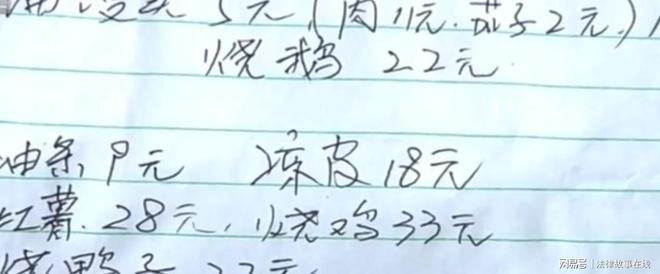 5元(肉11元.茄子2元)
烧鹅 22元
油条,9元 凉皮18元
红薯.28元,烧鸡33元
烧鸭子 22元
网易号 | 法律故事在线